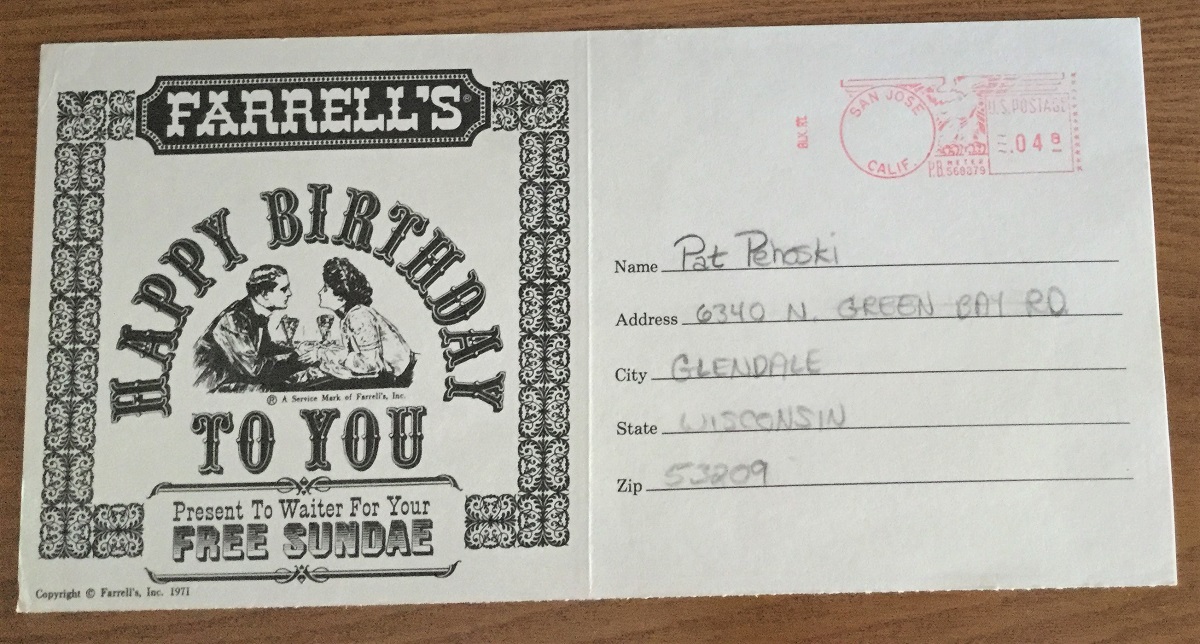 FARRELL'S®
HAPPY BIRTHDAY
® A Service Mark of Farrell's, Inc.
TO YOU
Present To Waiter For Your
FREE SUNDAE
Copyright © Farrell's, Inc. 1971
SAN JOSE
CALIF.
U.S. POSTAGE
.04 8
P.B. METER
568879
Name Pat Penoski
Address 6340 N. GREEN BAY RD.
City GLENDALE
State WISCONSIN
Zip 53209